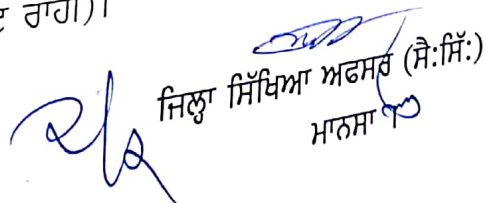 ਰਾਹੀਂ)।
ਜਿਲ੍ਹਾ ਸਿੱਖਿਆ ਅਫਸਰ (ਸੈ:ਸਿੱ:)
ਮਾਨਸਾ